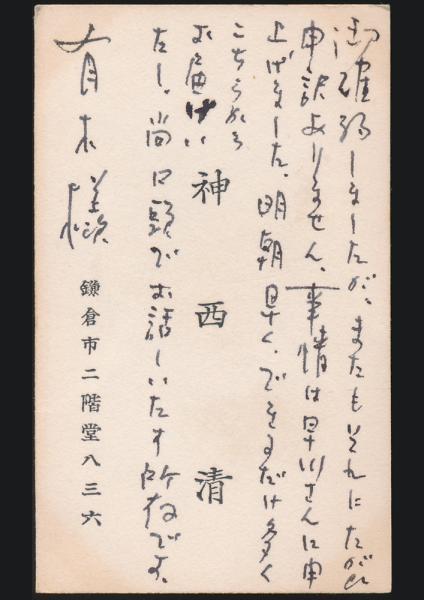 御確約しましたが、またもそれにたがひ
申訳ありません、事情は早川さんに申
上げました、明朝早く、できるだけ多く
こちらから
お届けい
たし、尚口頭でお話しいたす所存です。
青木様
神西清
鎌倉市二階堂八三六